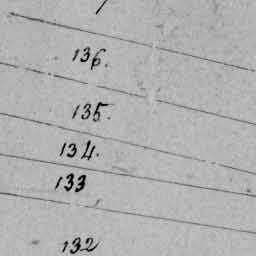 136.
135.
134.
133
132